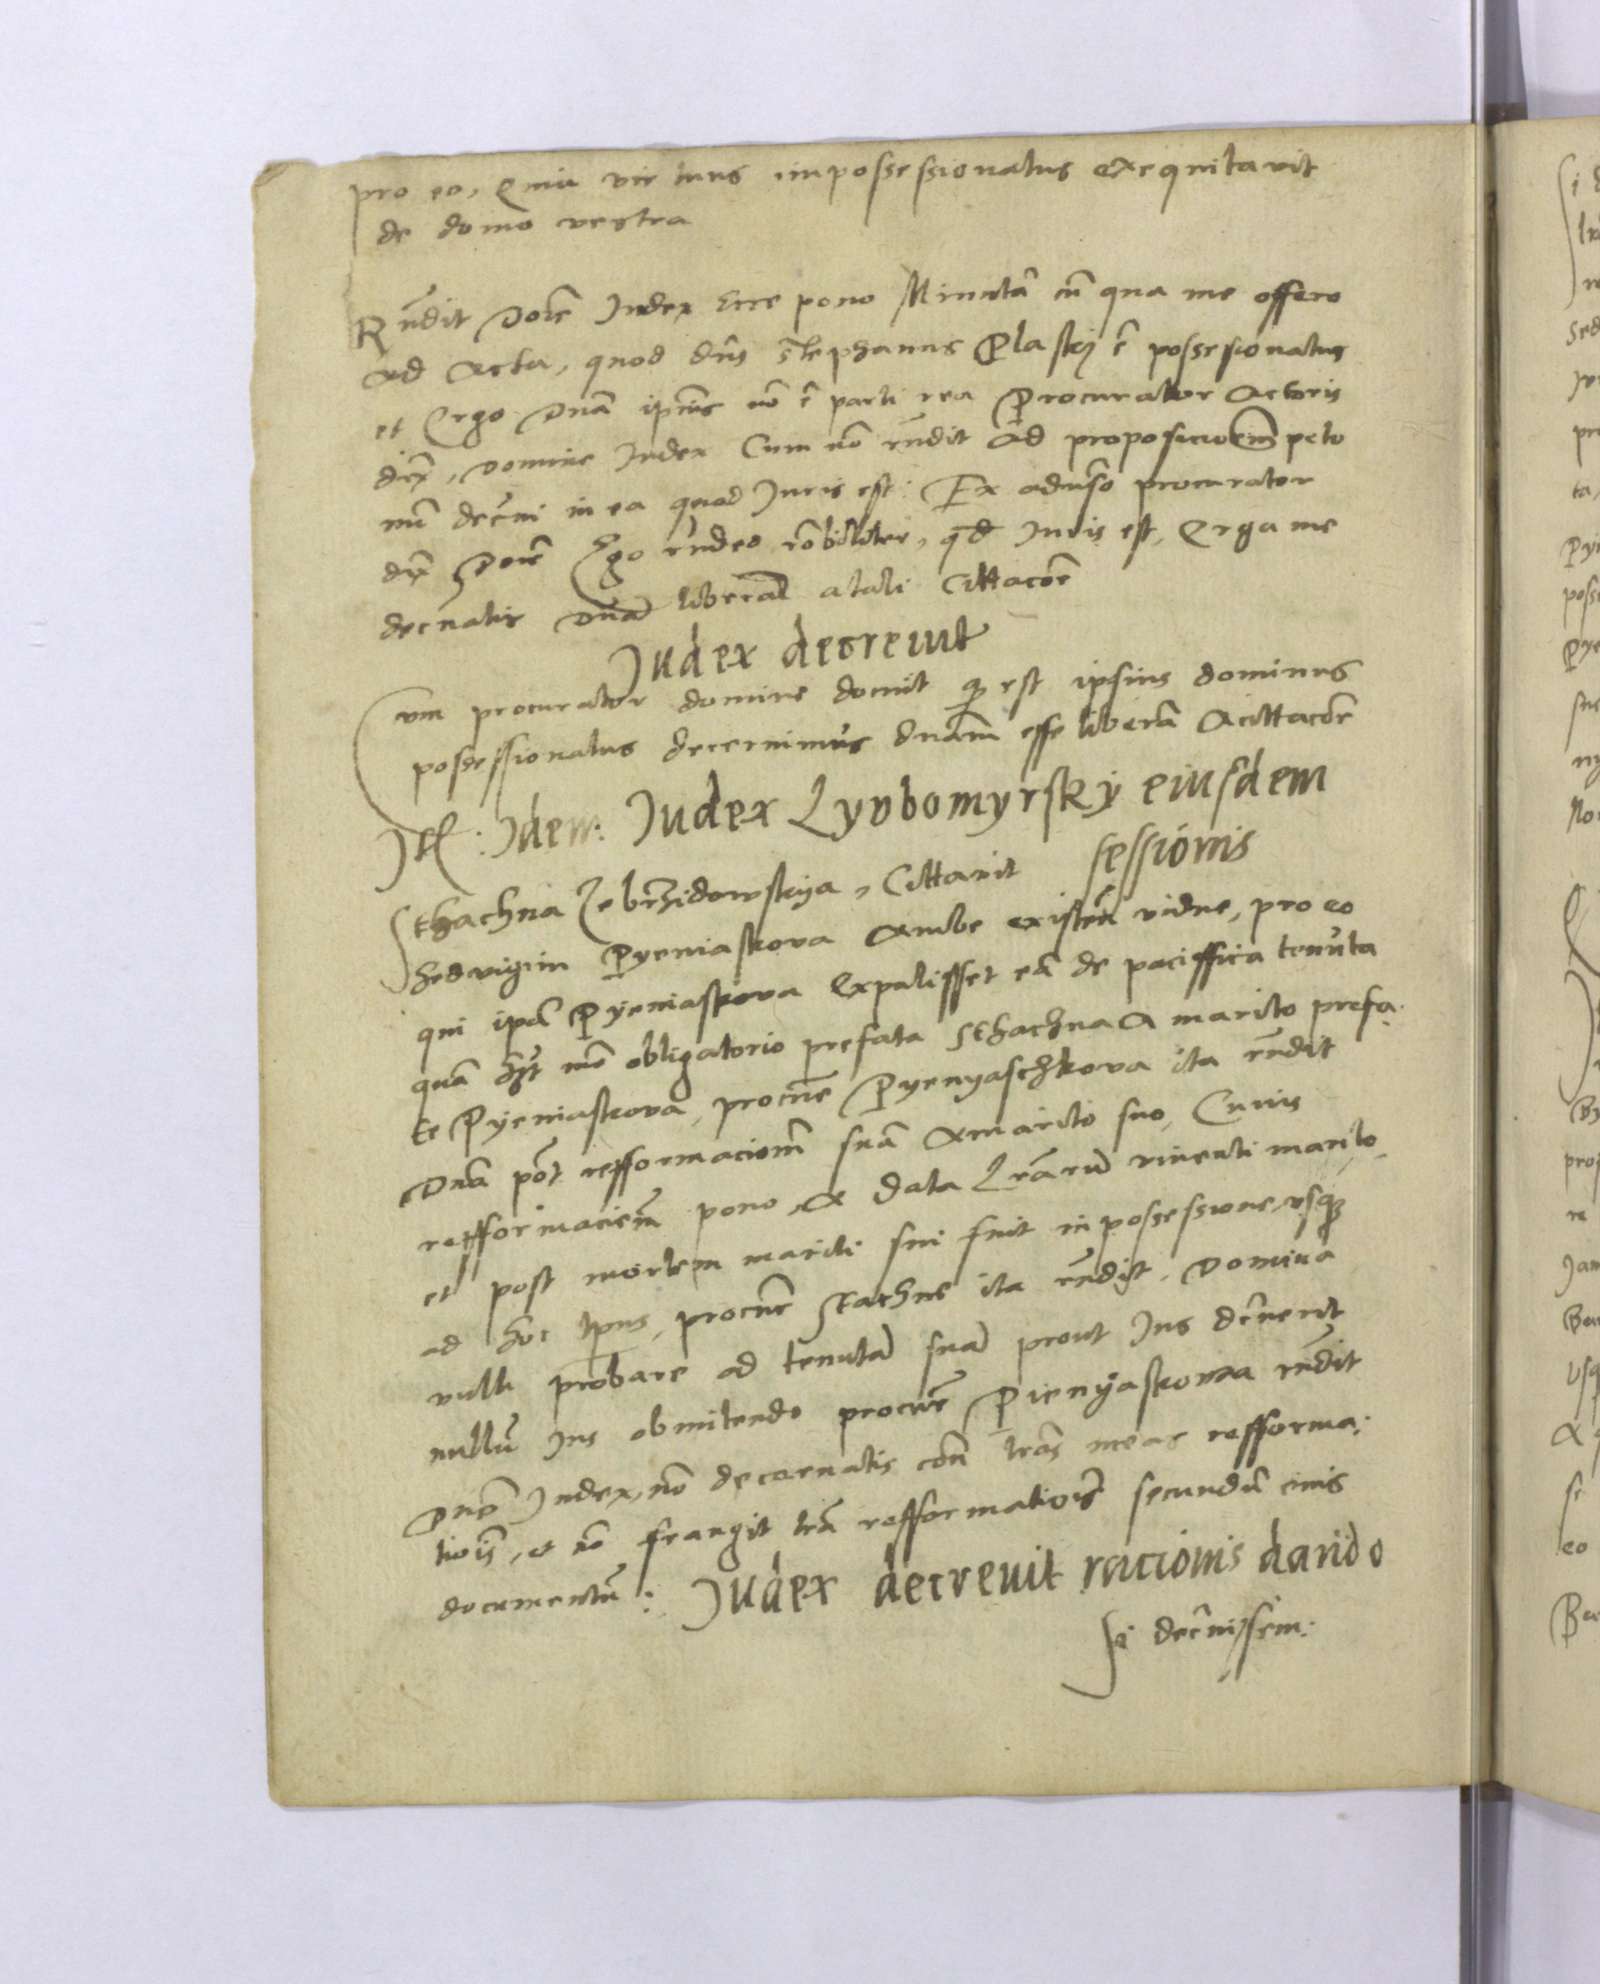 pro eo, Quia vir tuus impossessionatus exequitavit
de domo vestra
Rn̄dit Do͞ie Judex Ecce pono Minutā cū qua me offero
Ad Acta, quod dn̄s Stephanus Plastkj ē possesionatus
et Ergo Dnā ip̄ius nō ē parti rea Procurator Actoris
dix̄, Domine Judex Cum nō rn̄dit Ad proposicioem̄ peto
mū decr̄ni in ea quod Juris est: Ex aduerso procurator
dix̄ Do͞ie Ego rn̄deo, qd̄ Juris est, Erga me
decernatis Dnā liberā a tali Cittacōe
Judex decrevit
Cum procurator domine docuit qz est ipsius dominus
possessionatus decernimus dnam̄ esse liberā A cittacōe
Jtē: Jdem: Judex Lyvbomyrskÿ eiusdem
sessionis
Sthachna Zebrzidowskya, Cittavit
Hedvigim Pyeniaskova Ambe existen̄ vidue, pro eo
qui ipā Pyeniaskova Expulisset eā de paciffica tenuta
quā h̄ȳt mō obligatorio prefata Sthachna A marito prefa
te Pyeniaskova, procur̄e Pyenyaschkova ita rn̄dit
Dnā pōt refformacionē suā A marito suo, Cuius
refformaciem̄ pono, A data Lrārū viventi marito
et post mortem mariti sui fuit in possessione usqz
ad hoc tp̄us, procur̄e Stachne ita rn̄dit, Domina
vult probare ad tenutā suā prout Jus decr̄nerit
nullū Jus obmitendo procur̄e Pienÿaskowa rn̄dit
Dne Judex, nō decernatis con̄ lrās meas refforma:
tiois̄, et nō frangit lrā refformatiois̄ secundū cuius
documentū: Judex decrevit racionis dando
si decr̄nissem: